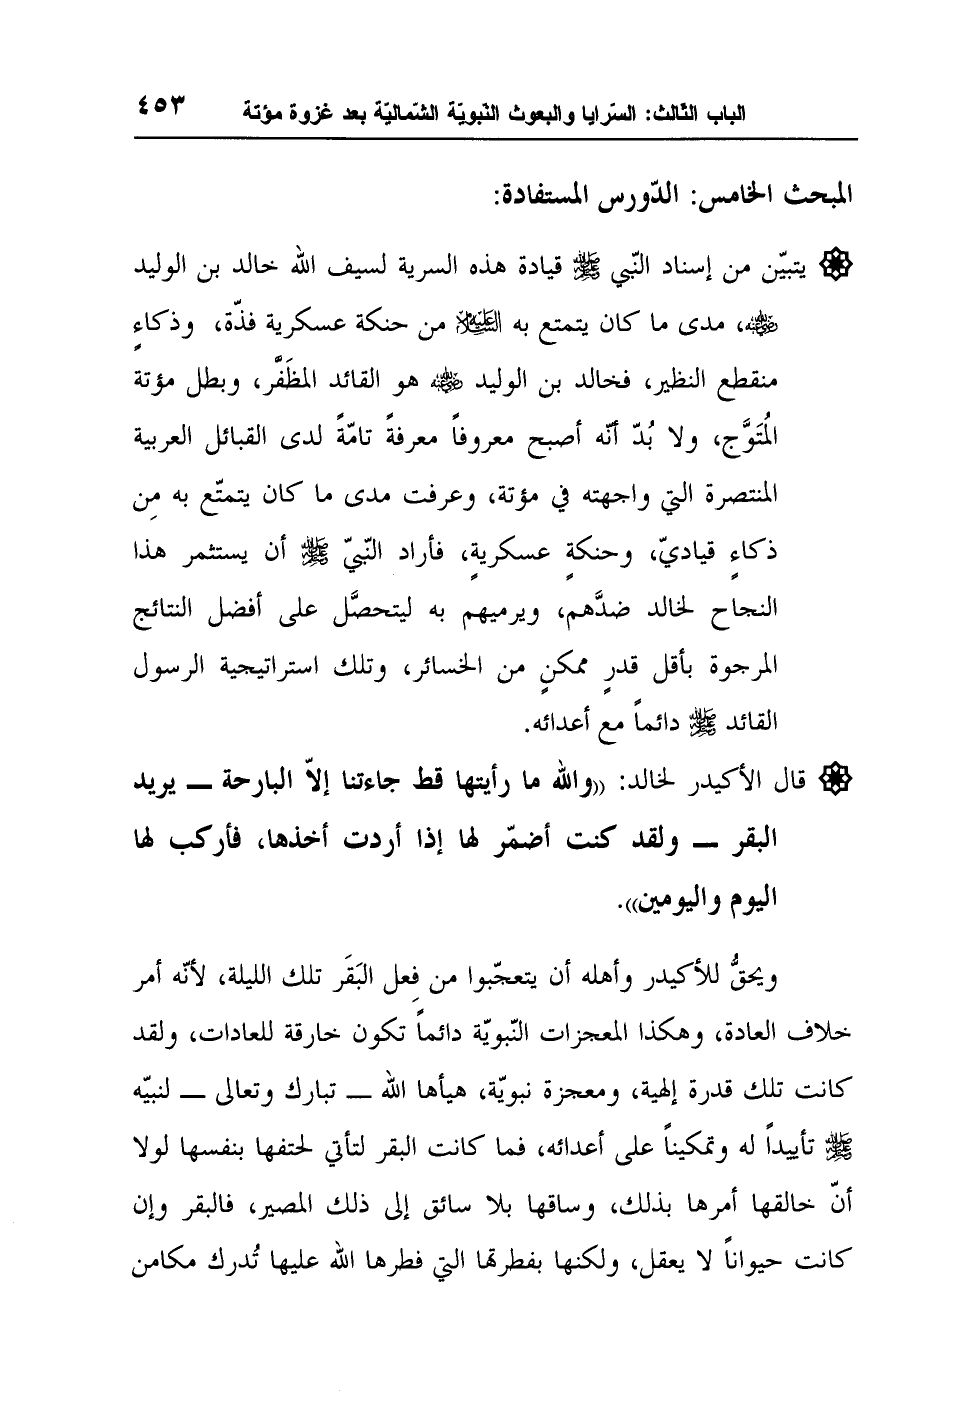 الباب الثّالث: السّرايا والبعوث النّبويّة الشّماليّة بعد غزوة مؤتة ٤٥٣
المبحث الخامس: الدّورس المستفادة:
يتبيّن من إسناد النّبي ﷺ قيادة هذه السرية لسيف الله خالد بن الوليد
رضي الله عنه، مدى ما كان يتمتع به عليه السلام من حنكة عسكرية فذّة، وذكاءٍ
منقطع النظير، فخالد بن الوليد رضي الله عنه هو القائد المظَفَّر، وبطل مؤتة
المُتَوَّج، ولا بُدّ أنّه أصبح معروفاً معرفةً تامّةً لدى القبائل العربية
المنتصرة التي واجهته في مؤتة، وعرفت مدى ما كان يتمتّع به مِن
ذكاءٍ قياديّ، وحنكةٍ عسكريةٍ، فأراد النّبيّ ﷺ أن يستثمر هذا
النجاح لخالد ضدَّهم، ويرميهم به ليتحصَّل على أفضل النتائج
المرجوة بأقل قدرٍ ممكنٍ من الخسائر، وتلك استراتيجية الرسول
القائد ﷺ دائماً مع أعدائه.
قال الأكيدر لخالد: ((والله ما رأيتها قط جاءتنا إلاّ البارحة ــ يريد
البقر ــ ولقد كنت أضمّر لها إذا أردت أخذها، فأركب لها
اليوم واليومين)).
ويحقُّ للأكيدر وأهله أن يتعجّبوا من فِعل البَقَر تلك الليلة، لأنّه أمر
خلاف العادة، وهكذا المعجزات النّبويّة دائماً تكون خارقة للعادات، ولقد
كانت تلك قدرة إلهية، ومعجزة نبويّة، هيأها الله ــ تبارك وتعالى ــ لنبيّه
ﷺ تأييداً له وتمكيناً على أعدائه، فما كانت البقر لتأتي لحتفها بنفسها لولا
أنّ خالقها أمرها بذلك، وساقها بلا سائق إلى ذلك المصير، فالبقر وإن
كانت حيواناً لا يعقل، ولكنها بفطرتها التي فطرها الله عليها تُدرك مكامن